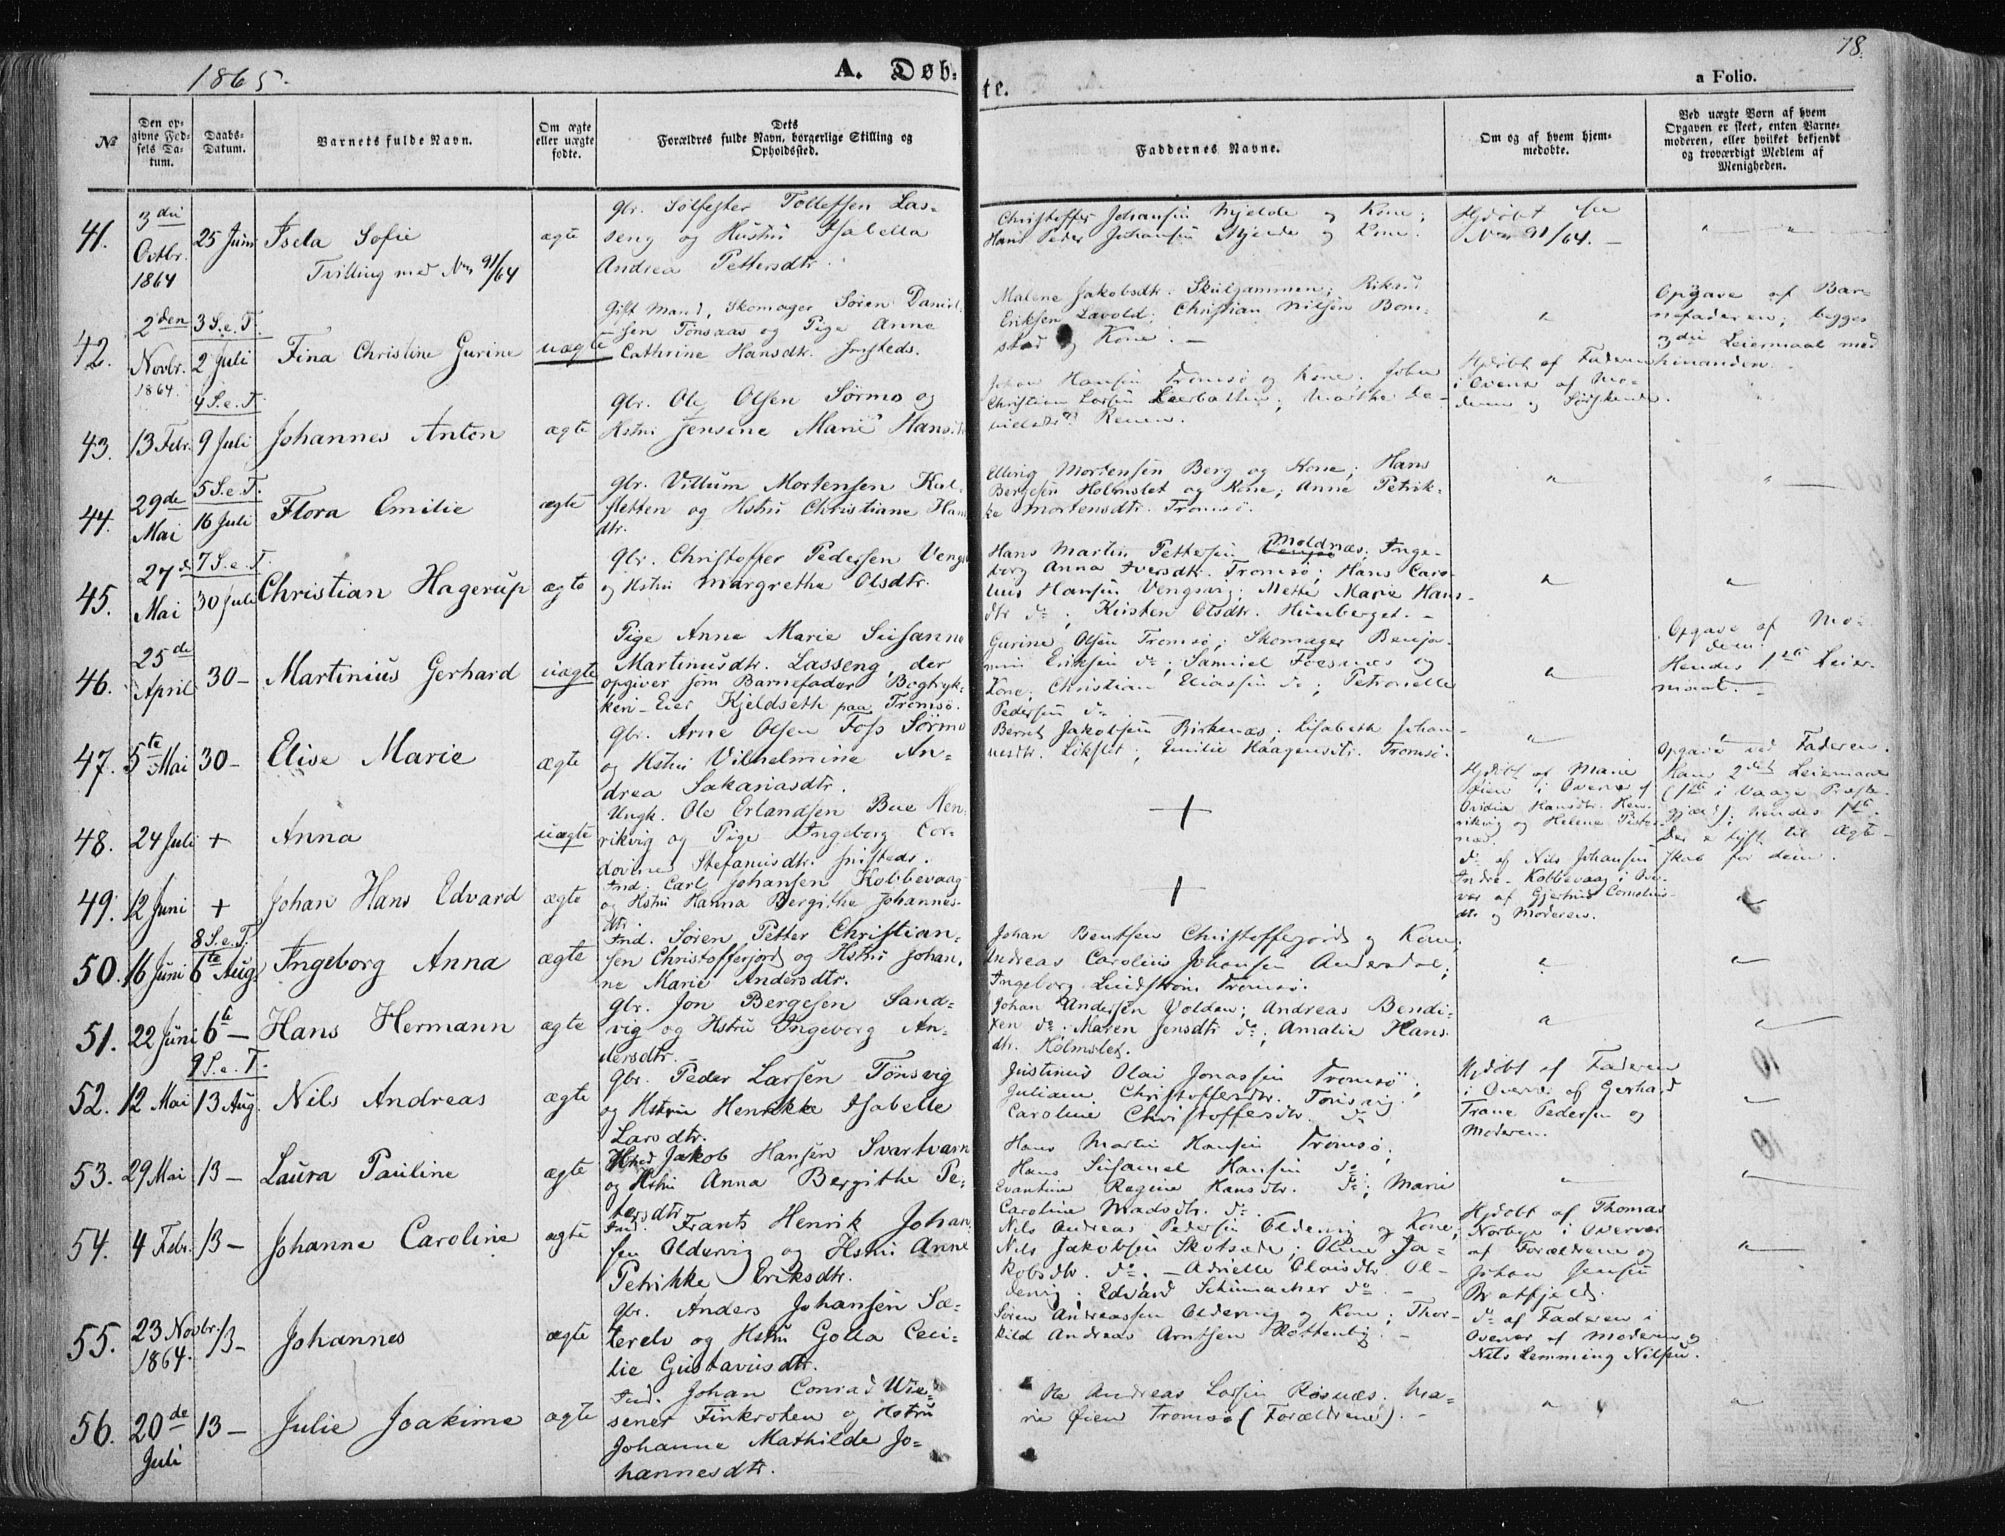 1865.
A. Døb-
te.
78.
a Folio.
No
Den op-
givne Fød-
sels Da-
tum.
Daabs-
Datum.
Barnets fulde Navn.
Om ægte
eller uægte
fødte.
Dets
Forældres fulde Navn, borgerlige Stilling og
Opholdssted.
Faddernes Navne.
Om og af hvem hjem-
medøbte.
Ved uægte Børn af hvem
Opgaven er skeet, enten Barne-
moderen, eller hvilket bekjendt
og troværdigt Medlem af
Menigheden.
41.
3die
Octbr.
1864
25 Juni
Isela Sofie
Tvilling med No 91/64
ægte
gbr. Sølfester Tollefsen Las-
seng og Hustru Isabella
Andrea Pettersdtr.
Christoffer Johansen Mjelde og Kone;
Hans Peder Johansen Mjelde og Kone.
Hjdøbt see
No 91/64.
42.
2den
Novbr.
1864.
3 S. e. T.
2 Juli
Fina Christine Gurine
uægte
Gift Mand, Skomager Søren Daniel-
sen Tønsaas og Pige Anne
Cathrine Hansdtr. Insteds.
Malene Jakobsdtr. Skulgammen;
Eriksen Lavold; Christian Nilsen Bon-
stad og Kone.
Opgave af Bar-
nefaderen; begges
3die Leiermaal med
hinanden.
43.
13 Febr.
4 S. e. T.
9 Juli
Johannes Anton
ægte
gbr. Ole Olsen Sørmo og
Hstru Jensine Marie Hansdtr
Johan Hansen Tromsø og Kone; John
Christian Larsen Leerbakken; Marthe Da-
nielsdtr. Renen.
Hjdøbt af Faderen
i Overv. af Mo-
deren og Søskende.
44.
29de
Mai
5 S. e. T.
16 Juli
Flora Emilie
ægte
gbr. Villum Mortensen Kal-
sletten og Hstru Christiane Hans
dtr.
Elling Mortensen Berg og Kone; Hans
Bergesen Holmslet og Kone; Anne Petrik-
ke Mortensdtr. Tromsø.
45.
27de
Mai
7 S. e. T.
30 Juli
Christian Hagerup
ægte
gbr. Christoffer Pedersen Vengs
og Hstru Margrethe Olsdtr.
Hans Martin Pettersen Moldnæs; Inge-
borg Anna Iversdtr. Tromsø; Hans Caro-
lius Hansen Vengsøy; Mette Marie Hans-
dtr do; Kirsten Olsdtr. Himberget.
46.
25de
April
30 –
Martinius Gerhard
uægte
Pige Anne Marie Susanne
Martinusdtr. Lasseng, der
opgiver som Barnefader Bogtryk-
keri-Eier Kjeldseth paa Tromsø.
Gurine Olsen Tromsø; Skomager Benja-
min Eriksen do; Samuel Foesnæs og
Kone; Christian Eliassen do; Petronelle
Pedersen do
Opgave af Mo-
deren.
Hendes 1ste Leier-
maal.
47.
5te Mai
30 –
Elise Marie
ægte
gbr. Arne Olsen Foss Sørmo
og Hstru Vilhelmine An-
drea Sakariasdtr.
Bernt Jakobsen Birkenæs; Elisabeth Johan-
nesdtr. Løkslet; Emilie Haagensdtr. Tromsø.
48.
24 Juli
+
Anna
uægte
Ungk. Ole Erlandsen Bue Hen-
rikvig og Pige Ingeborg Cor-
dovine Stefanusdtr. Insteds.
+
Hjdøbt af Marie
Øien i Overv. af
Ovidia Hansdtr. Hen-
rikvig og Helene
Opgave ved Faderen.
Hans 2det Leiermaal
(1ste i Vaage Præste-
gjæld); hendes 1ste.
Der er lyst til Ægte-
skab for dem.
49.
12 Juni
+
Johan Hans Edvard
ægte
Ind. Carl Johansen Kobbevaag
og Hstru Hanna Bergithe Johannes-
dtr.
+
do af Nils Johansen
Indre-Kobbevaag i Over-
vær af Gjertrud Cornelius-
dtr og Moderen.
50.
16 Juni
8 S. e. T.
6te Aug.
Ingeborg Anna
ægte
Ind. Søren Petter Christian-
sen Christofferjord og Hstru Johan-
ne Marie Andersdtr.
Johan Bentsen Christofferjord og Kone,
Andreas Carolius Johansen Andersdal;
Ingeborg Lindstrøm Tromsø.
51.
22 Juni
6te –
Hans Hermann
ægte
gbr. Jon Bergesen Sand-
vig og Hstru Ingeborg An-
dersdtr.
Johan Andersen Volden; Andreas Bendi-
xen do. Maren Jensdtr do; Amalie Hans-
dtr. Holmslet.
52.
12 Mai
9 S. e. T.
13 Aug.
Nils Andreas
ægte
gbr. Peder Larsen Tønsvig
og Hstru Henrikka Isabelle
Larsdtr.
Justinus Olai Jonassen Tromsø;
Juliane Christoffersdtr. Tønsvig.
Caroline Christoffersdtr. do
Hjdøbt af Faderen
i Overv. af Gerhard
Trane Pedersen og
Moderen.
53.
29 Mai
13 –
Laura Pauline
ægte
Jakob Hansen Svartvatn
og Hstru Anna Bergithe Pe-
tersdtr.
Hans Martin Hansen Tromsø;
Hans Susamel Hansen do
Evantine Regine Hansdtr. do; Marie
Caroline Madsdtr. do.
54.
4 Febr.
13 –
Johanne Caroline
ægte
Ind. Frants Henrik Johan-
sen Oldervig og Hstru Anne
Petrikke Eriksdtr.
Nils Andreas Pedersen Oldervig og Kone;
Nils Jakobsen Skotsæde; Oline Ja-
kobsdtr. do. – Adrielle Olaisdtr Ol-
dervig; Edvard Schumacher do
Hjdøbt af Thomas
Norbye i Overvær
af Forældrene og
Johan Jensen
Bratfjeld.
55.
23 Novbr.
1864.
13 –
Johannes
ægte
gbr. Anders Johansen Sæ-
terelv og Hstru Golla Ceci-
lie Gustavusdtr.
Søren Andreassen Oldervig og Kone; Thor-
kild Andreas Arntsen Rottenvig.
do af Faderen i
Overvær af Moderen og
Nils Lemming Nilsen.
56.
20de
Juli
13 –
Julie Joakime
ægte
Ind. Johan Conrad Wie-
sener Finkroken og Hstru
Johanne Mathilde Jo-
hannesdtr.
Ole Andreas Larsen Røsnæs; Ma-
rie Øien Tromsø (Forældrene).